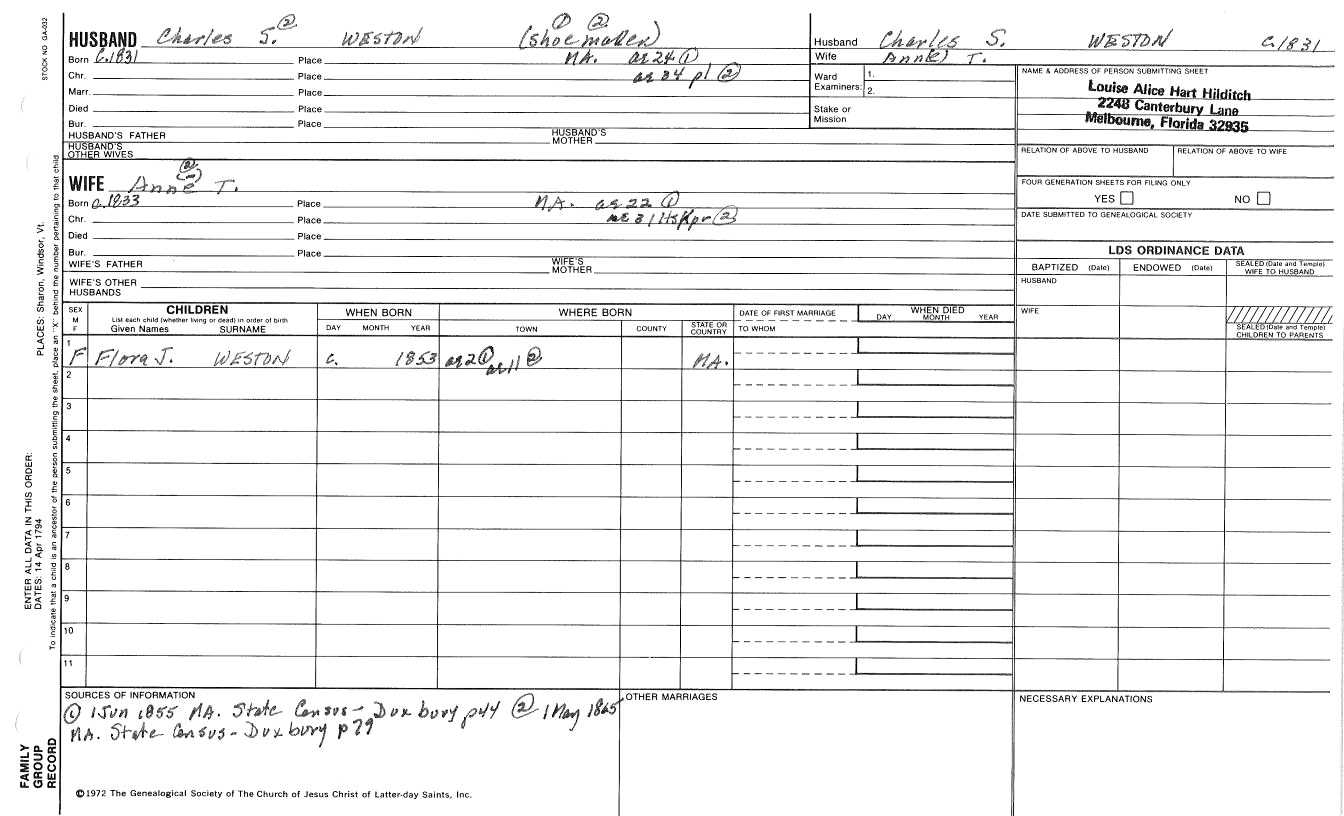 STOCK NO GA-032
HUSBAND Charles S. ② WESTON (shoemaker) ① ②
Born c.1831 Place MA. ae 24 ①
Chr. Place ae 34 ②
Marr. Place
Died Place
Bur. Place
HUSBAND'S FATHER HUSBAND'S MOTHER
HUSBAND'S OTHER WIVES
WIFE Anne T. ②
Born c.1833 Place MA. ae 22 ①
Chr. Place ae 31 HsKpr ②
Died Place
Bur. Place
WIFE'S FATHER WIFE'S MOTHER
WIFE'S OTHER HUSBANDS
Husband Charles S. WESTON c.1831
Wife Ann(e) T.
Ward Examiners: 1. 2.
Stake or Mission
NAME & ADDRESS OF PERSON SUBMITTING SHEET
Louise Alice Hart Hilditch
2248 Canterbury Lane
Melbourne, Florida 32935
RELATION OF ABOVE TO HUSBAND RELATION OF ABOVE TO WIFE
FOUR GENERATION SHEETS FOR FILING ONLY
YES NO
DATE SUBMITTED TO GENEALOGICAL SOCIETY
LDS ORDINANCE DATA
BAPTIZED (Date) ENDOWED (Date) SEALED (Date and Temple) WIFE TO HUSBAND
HUSBAND
WIFE
SEALED (Date and Temple) CHILDREN TO PARENTS
SEX M F
CHILDREN
List each child (whether living or dead) in order of birth
Given Names SURNAME
WHEN BORN
DAY MONTH YEAR
WHERE BORN
TOWN COUNTY STATE OR COUNTRY
DATE OF FIRST MARRIAGE
TO WHOM
WHEN DIED
DAY MONTH YEAR
1 F Flora J. WESTON c. 1853 ae 2 ① ae 11 ② MA.
2
3
4
5
6
7
8
9
10
11
SOURCES OF INFORMATION
① 1 Jun 1855 MA. State Census - Duxbury p44 ② 1 May 1865
MA. State Census - Duxbury p79
OTHER MARRIAGES
NECESSARY EXPLANATIONS
©1972 The Genealogical Society of The Church of Jesus Christ of Latter-day Saints, Inc.
FAMILY GROUP RECORD
ENTER ALL DATA IN THIS ORDER:
DATES: 14 Apr 1794
PLACES: Sharon, Windsor, Vt.
To indicate that a child is an ancestor of the person submitting the sheet, place an "X" behind the number pertaining to that child